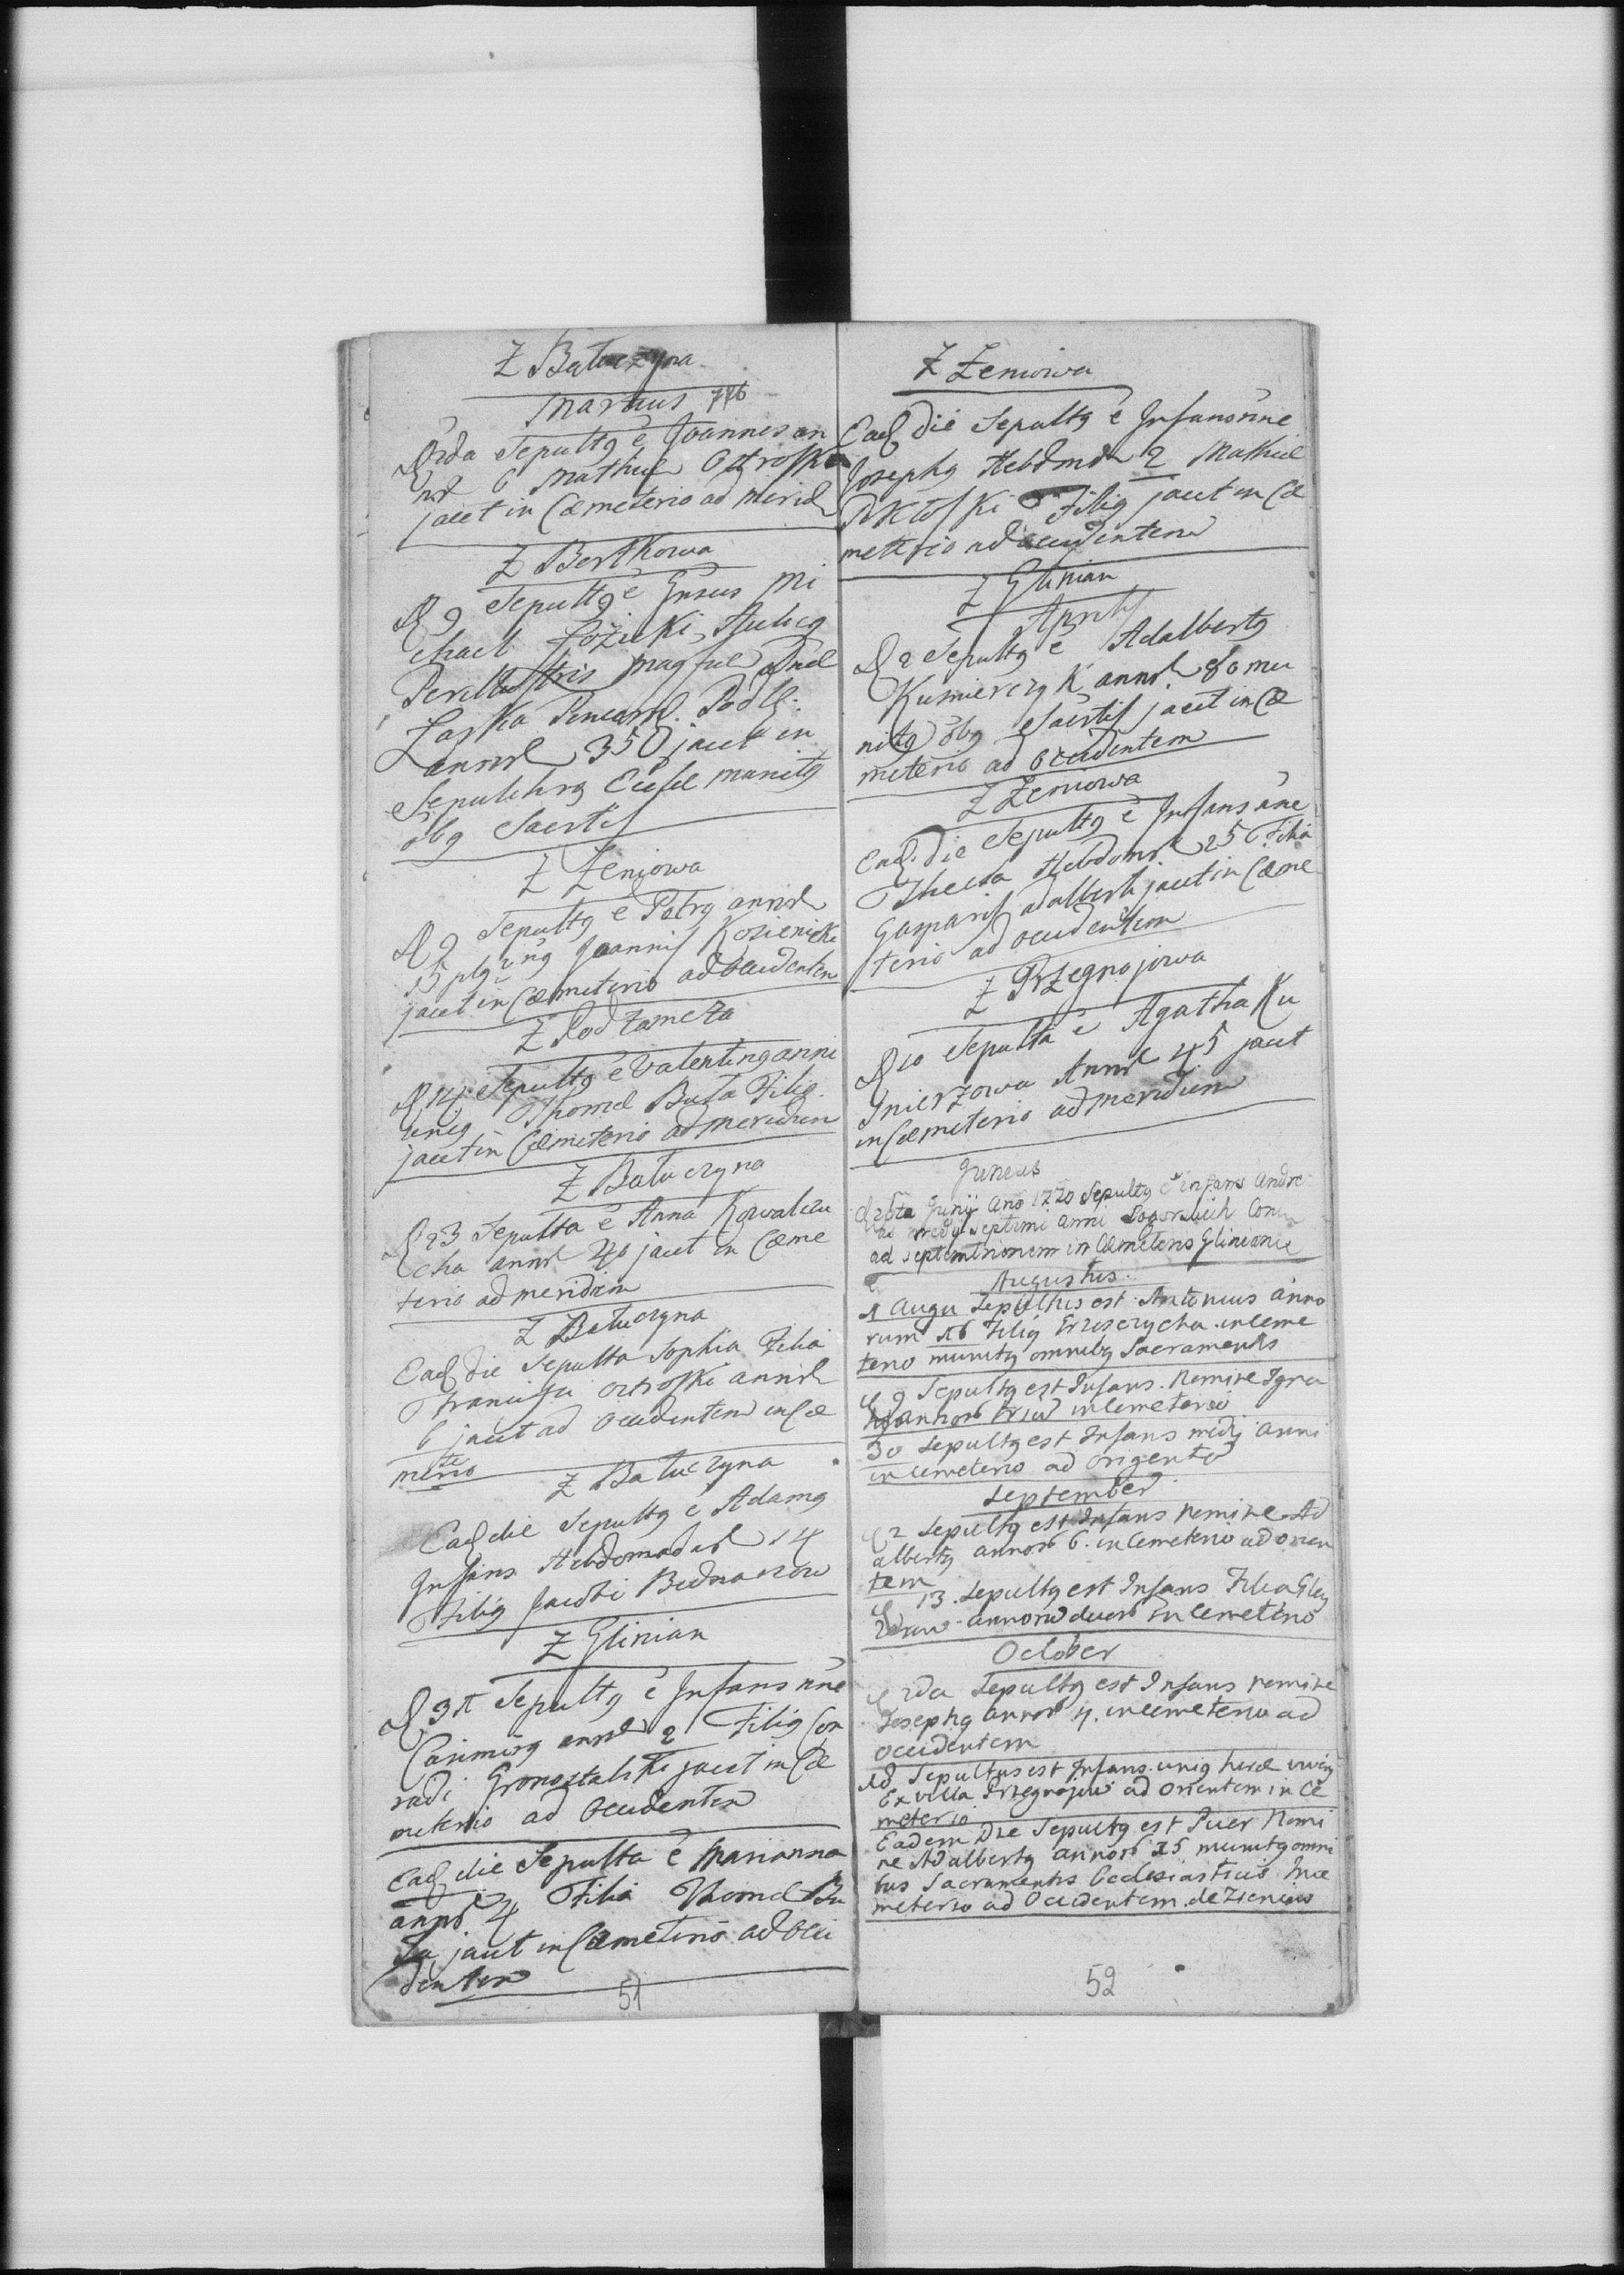 Z Batuczyna
Martius
2da Sepultg ē Joannes an
6 Mathiæ Ostroski
jacet in Cæmeterio ad merid
Z Bortkowa
D 9 Sepultg ē Gnsus Mi
chael Łozicki Aulicg
Perillustris Magfcæ Dnæ
Łaska
annor 350 jacet in
Sepulchro munitg
obg Sacrtis
Z Zeniowa
D 9 Sepultg ē Petrg annor
Joannis Kozienicki
jacet in Cæmeterio ad occidentem
Z Podzamcza
D 14 Sepultg ē Valenting anni
unig Thomæ Buta Filig
jacet in Cæmeterio ad meridiem
Z Batuczyna
D 23 Sepulta ē Anna Kowalczu
cha annor 40 jacet in Cæme
terio ad meridiem
Z Batuczyna
Ead die Sepulta Sophia Filia
Francisci Ostroski annor
6 jacet ad occidentem in Cæ
meterio
Z Batuczyna
Ead die Sepultg ē Adamg
Infans Hebdomadar 14
Filig Jacobi Bednarzow
Z Glinian
D 31 Sepultg ē Infans nne
Casimirg annor 2 Filig Con
radi Gronostalski jacet in Cæ
meterio ad Occidentem
Ead die Sepulta ē Marianna
annor 4 Filia Thomæ Bu
ta jacet in Cæmeterio ad Occi
dentem
51
Z Zeniowa
Ead die Sepultg ē Infans nne
Josephg Hebdmdr 2 Mathiæ
Filig jacet in Cæ
meterio ad occidentem
Z Glinian
Aprilis
D 2 Sepultg ē Adalbertg
Kusmierczyk annor 80 mu
nitg obg Sacrtis jacet in Cæ
meterio ad Occidentem
Z Zeniowa
Ead die Sepultg ē Infans nne
Thecla Hebdomdr 25 Filia
Gasparis adalberti jacet in Cæme
terio ad occidentem
Z Przegnojowa
D 10 Sepulta ē Agatha Ku
snierzowa Annor 45 jacet
in Cæmeterio ad meridiem
Junius
Junij Ano 1720 Sepultg ē infans Andre
as medij septimi anni
ad septemtrionem in Cæmeterio Glinianie
Augustus
1 Augu Sepultus est Antonius anno
rum 16 Filig in ceme
terio munitg omnibg Sacramentis
D 9 Sepultg est Infans Nomine Igna
annor in cemeterio
30 Sepultg est Infans medij anni
in cemeterio ad origentē
September
D 2 Sepultg est Infans nomine Ad
albertg annor 6. in Cemeterio ad orien
tem
D 13. Sepultg est Infans Filia
annorū duor in Cemeterio
October
D 2da Sepultg est Infans nomine
Josephg annor 4. in cemeterio ad
occidentem
Sepultus est Infans unig
Ex villa Przegnojow ad orientem in Ce
meterio
Eadem Die Sepultg est Puer Nomi
ne Adalbertg annor 15 munitg omni
bus Sacramentis Ecclesiasticis In ce
meterio ad Occidentem de Zieniow
52